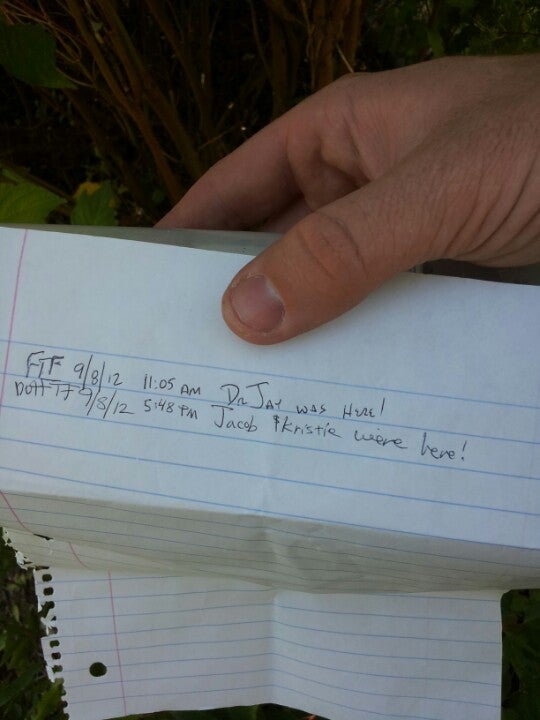 FTF 9/8/12 11:05 AM Dr Jay was Here!
9/8/12 5:48 PM Jacob & Kristie were here!